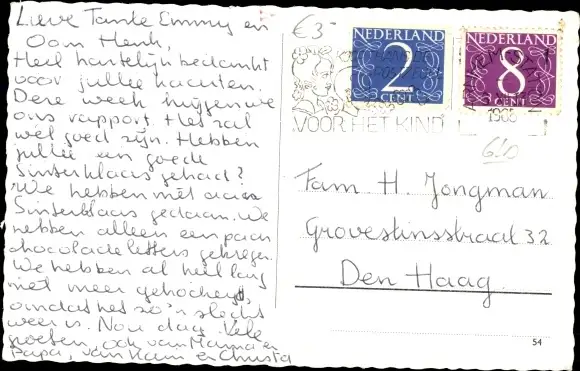 Lieve Tante Emmy en
Oom Henk,
Heel hartelijk bedankt
voor jullie kaarten.
Deze week krijgen we
ons rapport. Het zal
wel goed zijn. Hebben
jullie een goede
Sinterklaas gehad?
We hebben niet aan
Sinterklaas gedaan. We
hebben alleen een paar
chocoladeletters gekregen.
We hebben al heel lang
niet meer gehockeyd,
omdat het zo'n slecht
weer is. Nou dag. Vele
groeten, ook van Mamma en
Papa, van Ram en Christa
€ 3-
NEDERLAND
2
CENT
NEDERLAND
8
CENT
VOOR HET KIND
1965
Fam H. Jongman
Grovestinsstraat 32
Den Haag
54